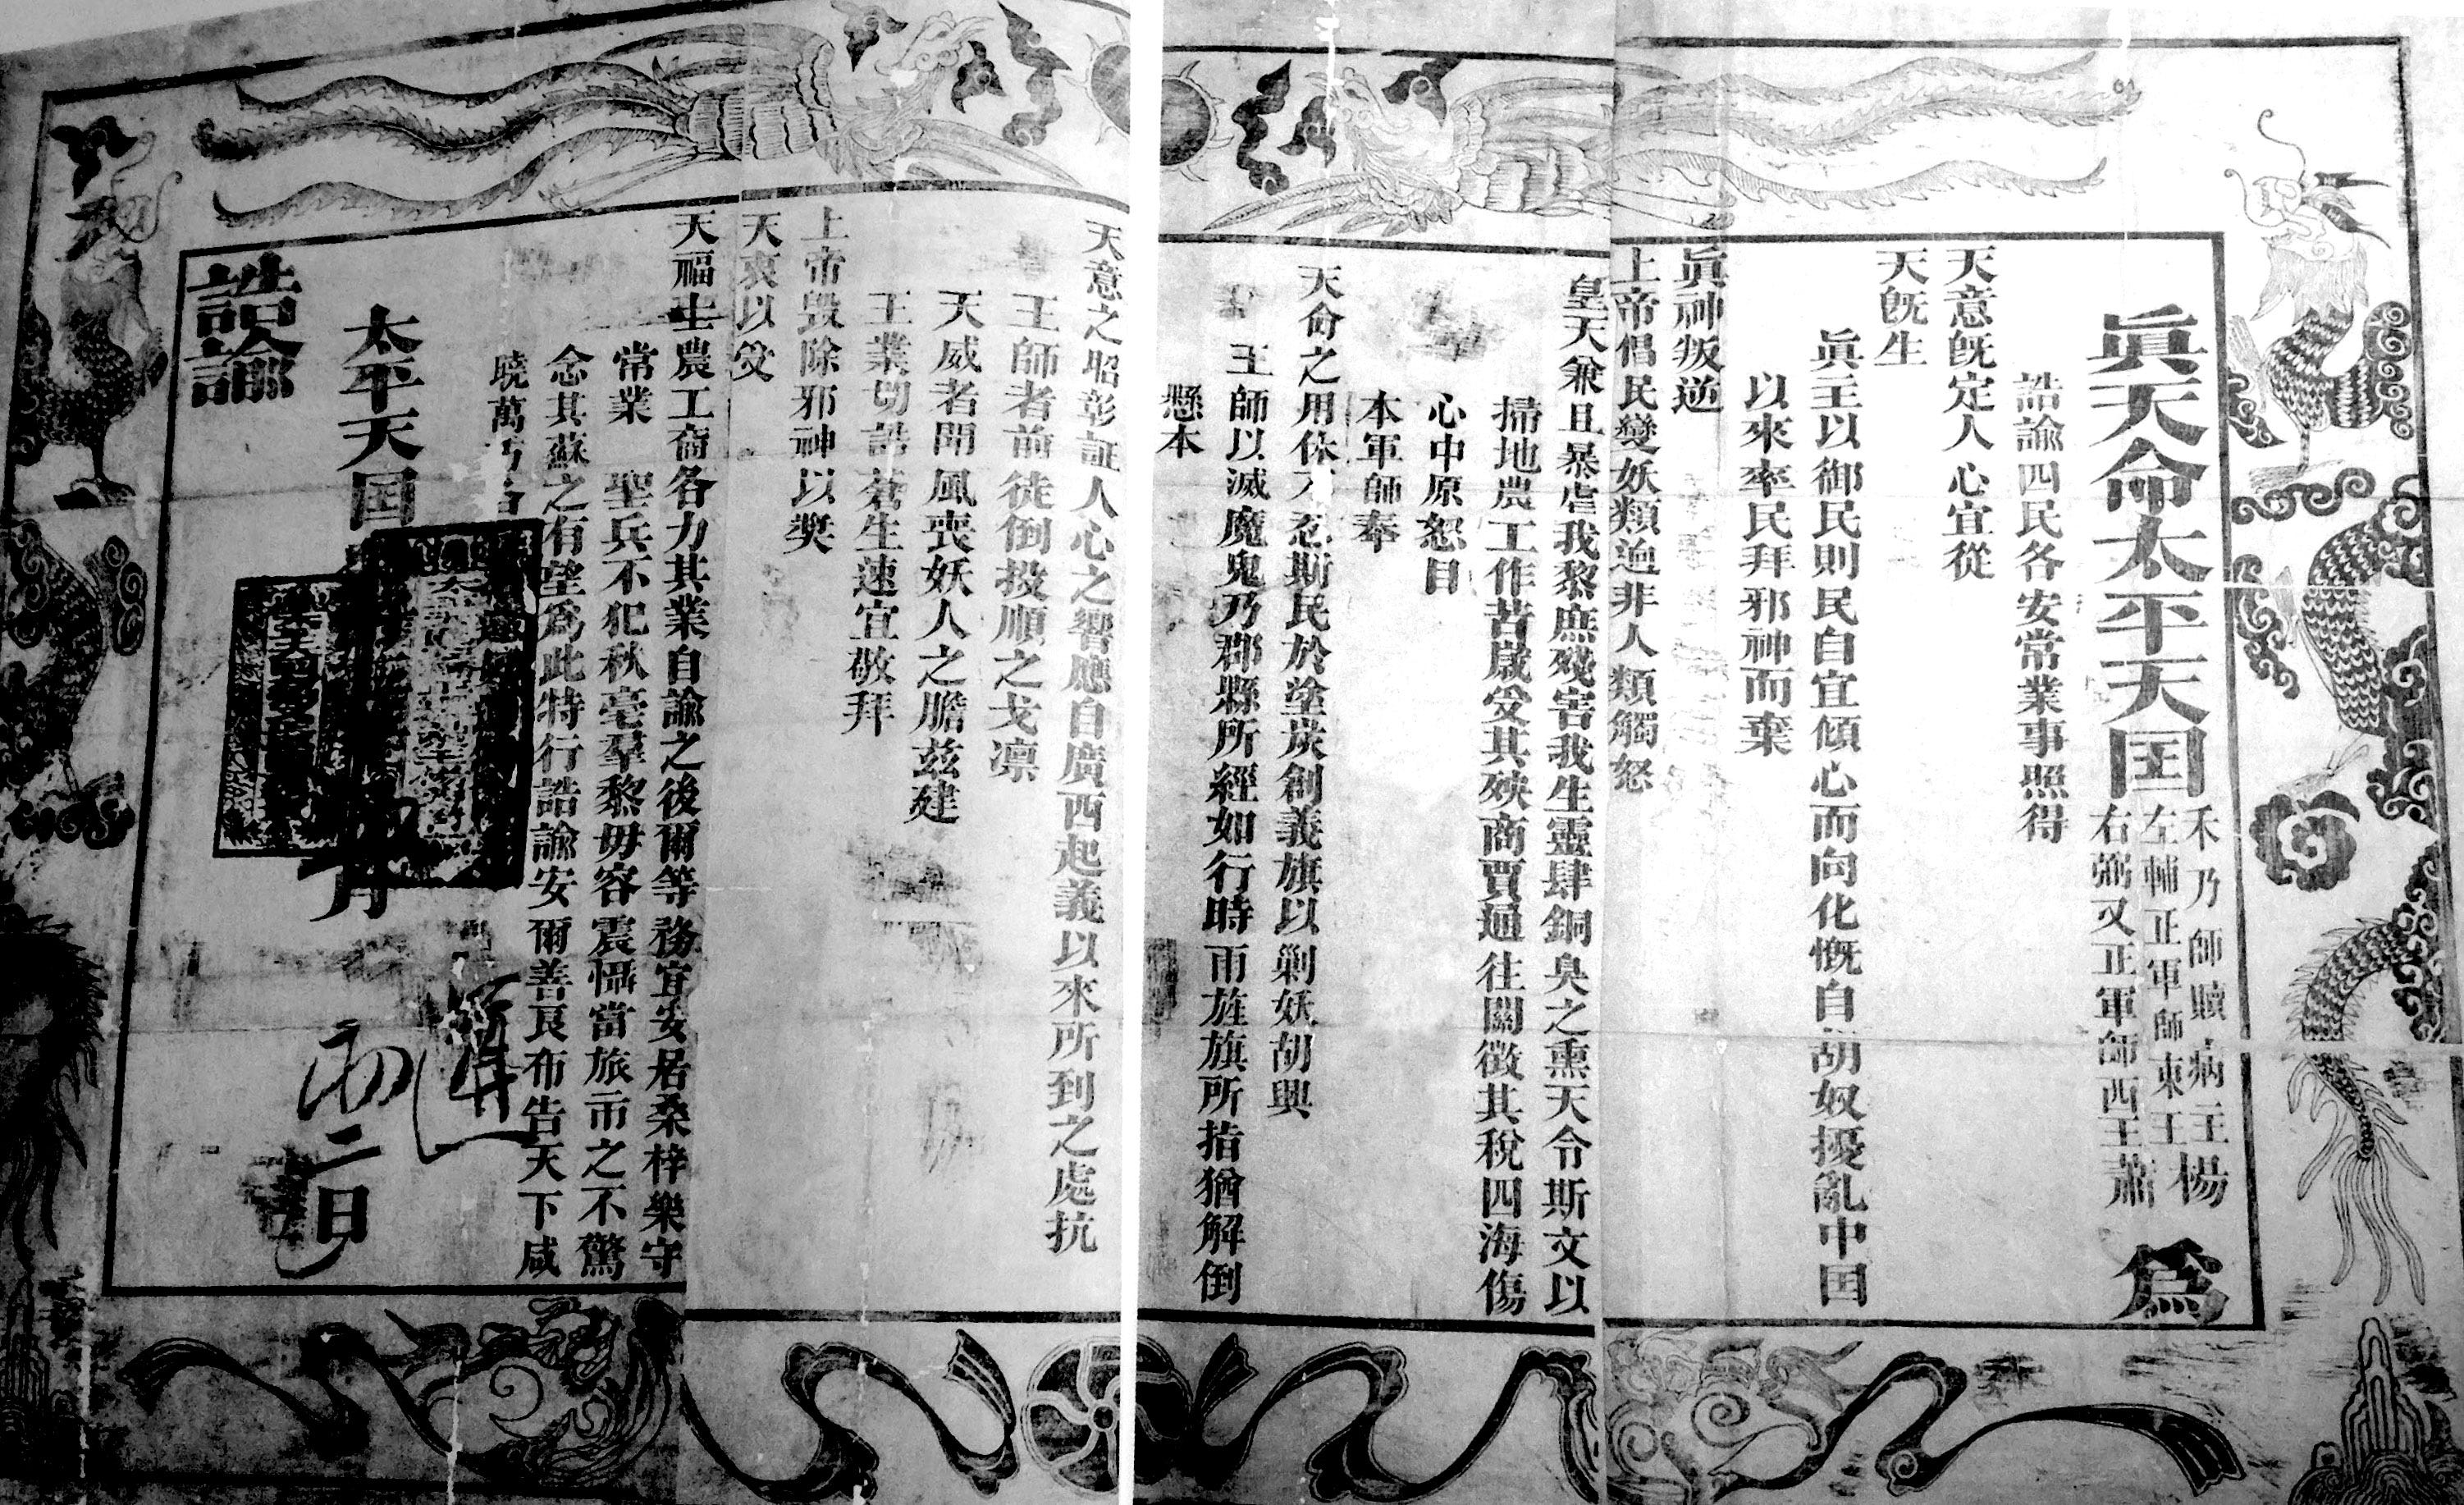 眞天命太平天囯
禾乃師贖病主
左輔正軍師東王楊
右弼又正軍師西王蕭
爲
誥諭四民各安常業事照得
天意旣定人心宜從
天旣生
眞主以御民則民自宜傾心而向化慨自胡奴擾亂中囯
以來率民拜邪神而棄
眞神叛逆
上帝倡民變妖類逈非人類觸怒
皇天兼且暴虐我黎庶殘害我生靈肆銅臭之熏天令斯文以
掃地農工作苦歲受其殃商賈通往關徵其稅四海傷
心中原怒目
本軍師奉
天命之用休不忍斯民於塗炭創義旗以剿妖胡興
王師以滅魔鬼乃郡縣所經如行時雨旌旗所指猶解倒
懸本
天意之昭彰証人心之響應自廣西起義以來所到之處抗
王師者前徒倒投順之戈凛
天威者聞風喪妖人之膽茲建
王業切誥蒼生速宜敬拜
上帝毀除邪神以奬
天衷以受
天福士農工商各力其業自諭之後爾等務宜安居桑梓樂守
常業 聖兵不犯秋毫羣黎毋容震慑當旅市之不驚
念其蘇之有望爲此特行誥諭安爾善良布告天下咸
曉萬
太平天囯 月 初二日
誥諭